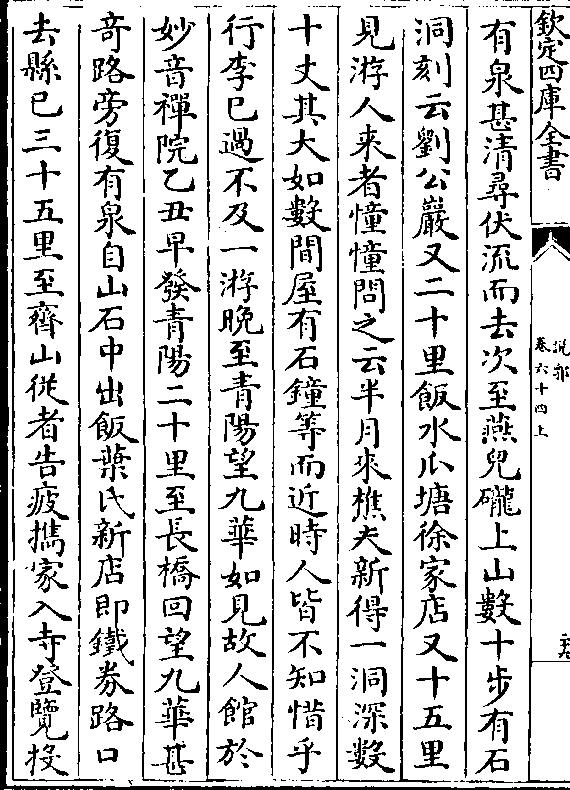 欽定四庫全書
說郛
卷六十四上
有泉甚清尋伏流而去次至燕兒礲上山數十步有石
洞刻云劉公巖又二十里飯水瓜塘徐家店又十五里
見游人來者憧憧問之云半月來樵夫新得一洞深數
十丈其大如數間屋有石鐘等而近時人皆不知惜乎
行李已過不及一游晚至青陽望九華如見故人館於
妙音禪院乙丑早發青陽二十里至長橋回望九華甚
竒路旁復有泉自山石中出飯葉氏新店即鐵劵路口
去縣已三十五里至齊山從者告疲攜家入寺登覽披